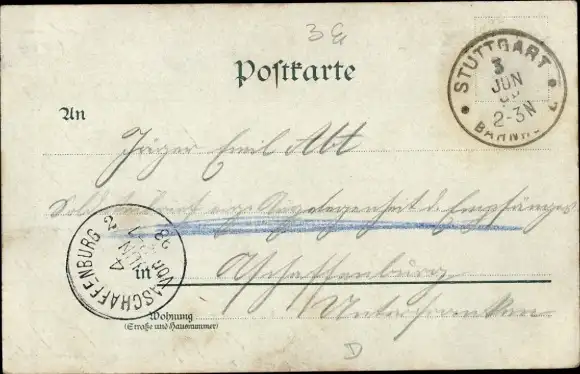 3
Postkarte
STUTTGART
3
JUN
2-3N
BAHNH
An
Jäger Emil Abt
Angelegenheit d. Empfängers
ASCHAFFENBURG 2
4
JUN
VOR
98
in Aschaffenburg
Unterfranken
Wohnung
(Straße und Hausnummer)
D